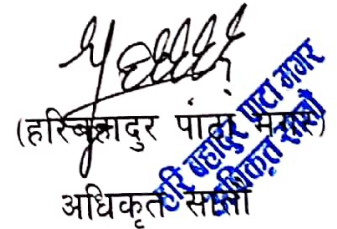 (हरि बहादुर पाटा मगर)
अधिकृत सातौं
हरि बहादुर पाटा मगर
अधिकृत सातौं